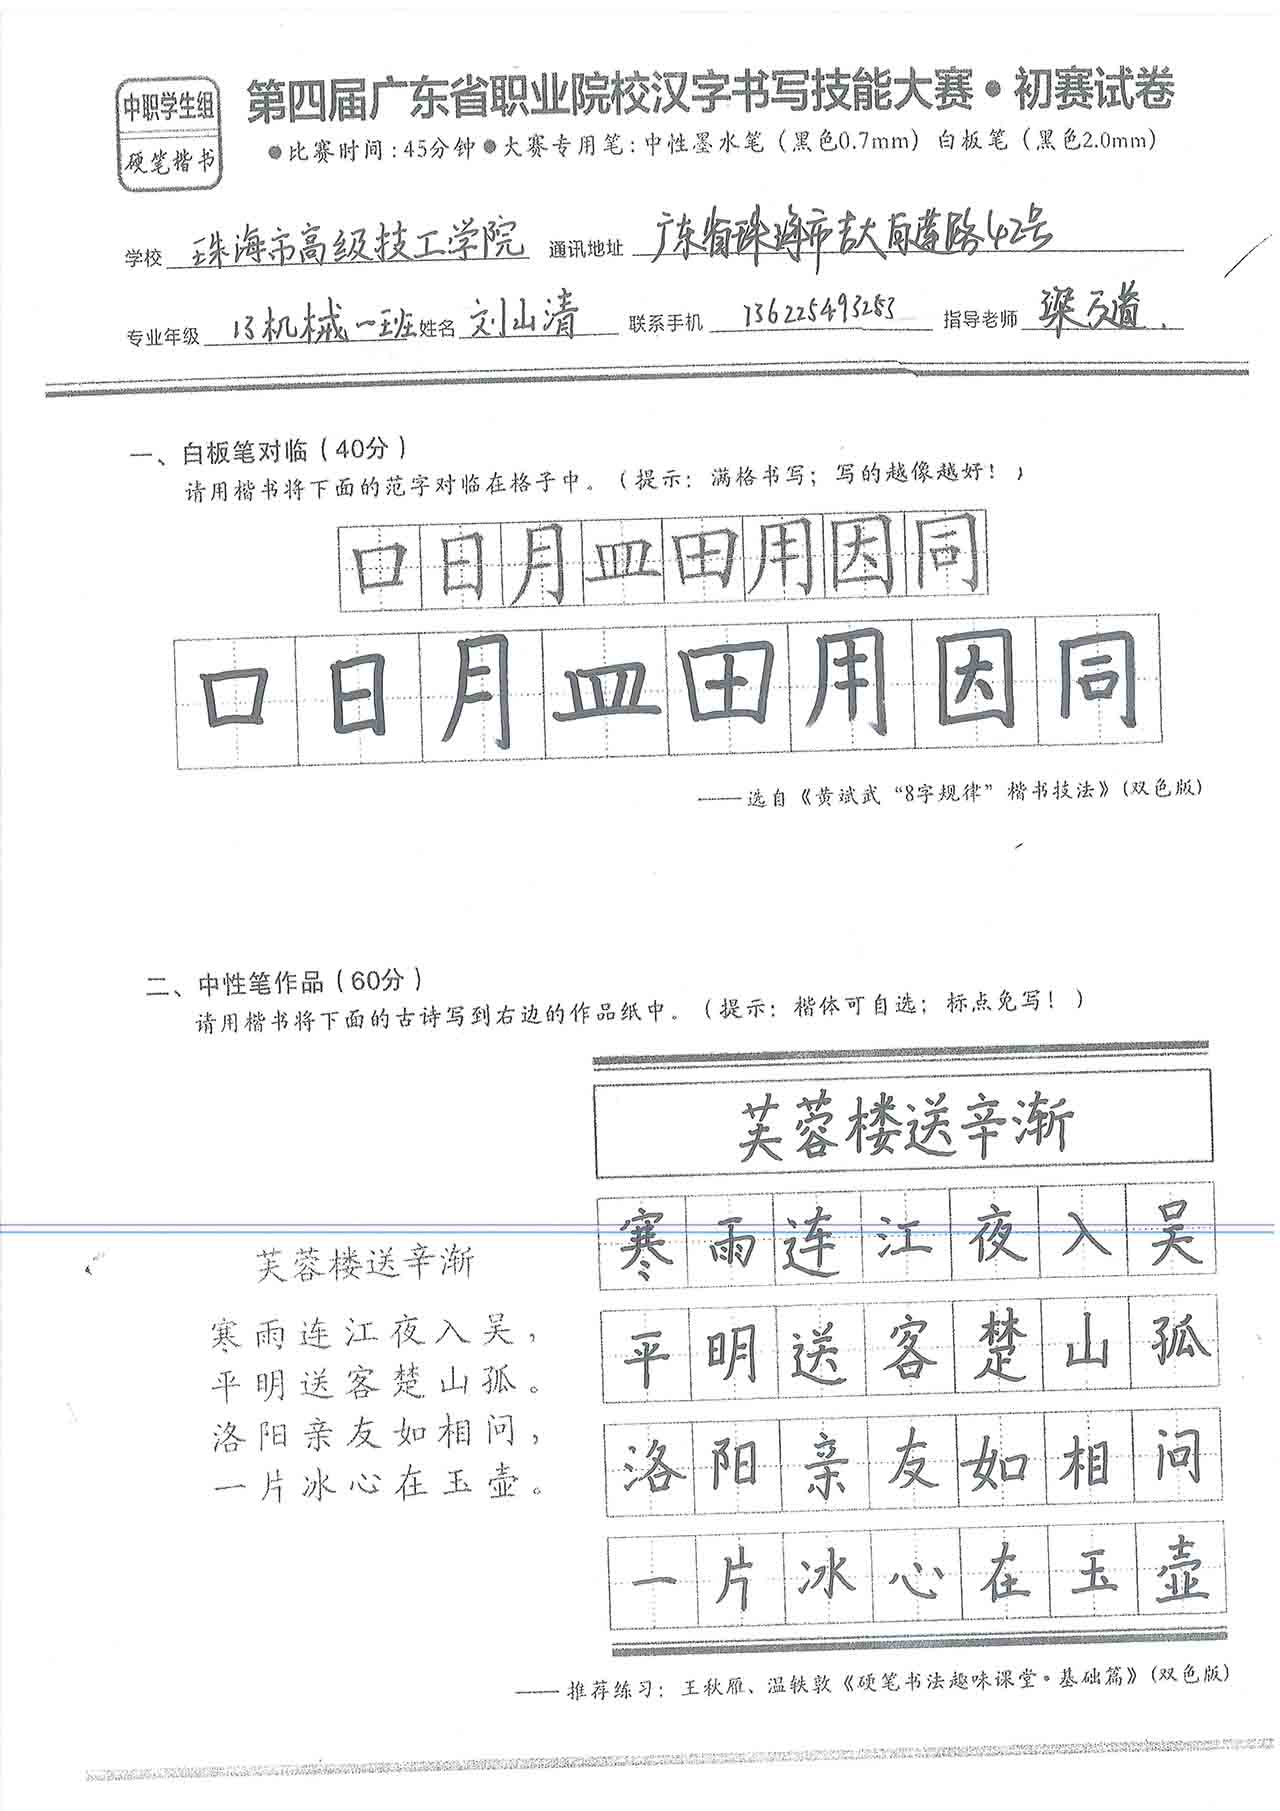 中职学生组
硬笔楷书
第四届广东省职业院校汉字书写技能大赛·初赛试卷
●比赛时间:45分钟●大赛专用笔:中性墨水笔(黑色0.7mm)白板笔(黑色2.0mm)
学校 珠海市高级技工学院 通讯地址 广东省珠海市吉大百莲路42号
专业年级 13机械一班 姓名 刘山清 联系手机 136225493253 指导老师 梁
一、白板笔对临(40分)
请用楷书将下面的范字对临在格子中。(提示:满格书写;写的越像越好!)
口日月皿田用因同
口日月皿田用因同
——选自《黄斌武“8字规律”楷书技法》(双色版)
二、中性笔作品(60分)
请用楷书将下面的古诗写到右边的作品纸中。(提示:楷体可自选;标点免写!)
芙蓉楼送辛渐
寒雨连江夜入吴,
平明送客楚山孤。
洛阳亲友如相问,
一片冰心在玉壶。
芙蓉楼送辛渐
寒雨连江夜入吴
平明送客楚山孤
洛阳亲友如相问
一片冰心在玉壶
——推荐练习:王秋雁、温轶敦《硬笔书法趣味课堂·基础篇》(双色版)